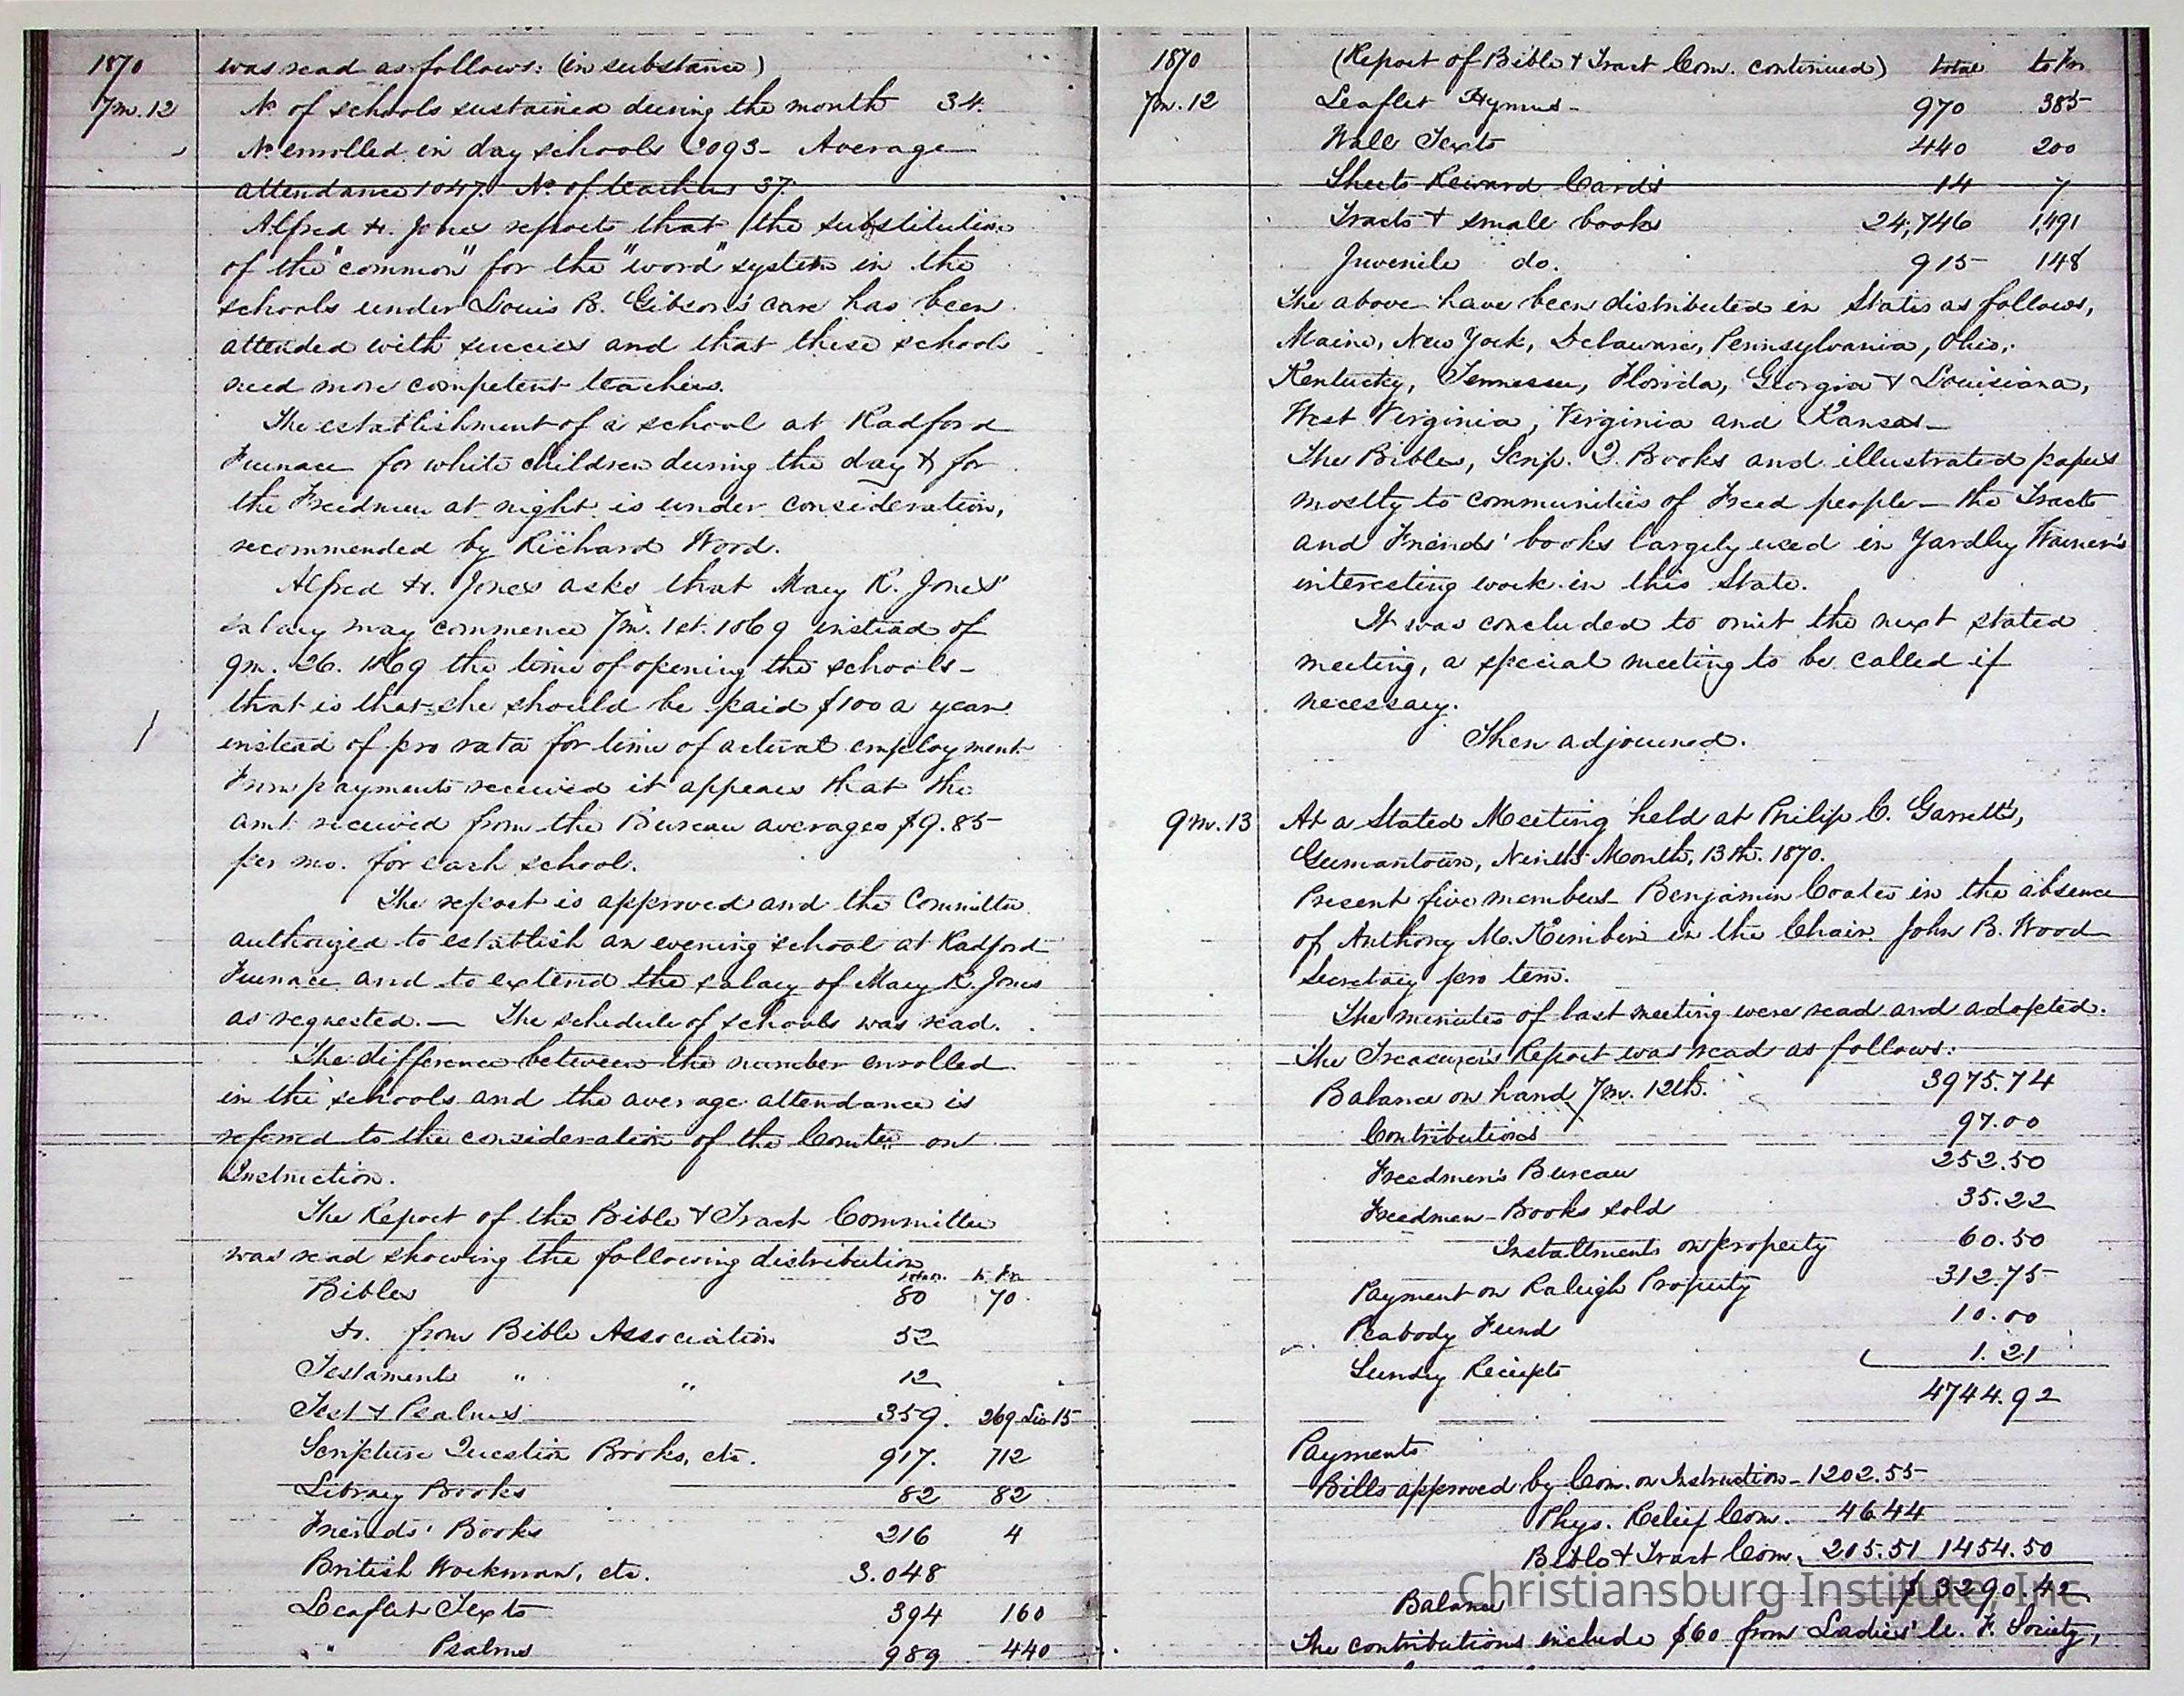 1870
was read as follows: (in substance)
7m. 12
No. of schools sustained during the month 34.
No. enrolled in day schools 2093 - Average
attendance 1047. No. of teachers 37.
Alfred H. Jones reports that the substitution
of the "common" for the "word" system in the
schools under Louis B. Gibson's care has been
attended with success and that these schools
need more competent teachers.
The establishment of a school at Radford
Furnace for white children during the day & for
the Freedmen at night is under consideration,
recommended by Richard Wood.
Alfred H. Jones asks that Mary R. Jones'
salary may commence 7m. 1st. 1869 instead of
9m. 26. 1869 the time of opening the schools -
that is that she should be paid $100 a year
instead of pro rata for time of actual employment
From payments received it appears that the
amt. received from the Bureau averages $9.85
per mo. for each school.
The report is approved and the Committee
authorized to establish an evening school at Radford
Furnace and to extend the salary of Mary R. Jones
as requested. — The schedule of schools was read.
The difference between the number enrolled
in the schools and the average attendance is
referred to the consideration of the Comtee on
Instruction.
The Report of the Bible & Tract Committee
was read showing the following distribution
total to Fn
Bibles 80 70
do. from Bible Association 52
Testaments " " 12
Test & Psalms 359. 269 15
Scripture Question Books, etc. 917. 712
Library Books 82 82
Friends' Books 216 4
British Workman, etc. 3.048
Leaflet Texts 394 160
" Psalms 989 440
1870
(Report of Bible & Tract Com. continued) total to Fn
7m. 12
Leaflet Hymns - 970 385
Wall Texts 440 200
Sheets Reward Cards 14 7
Tracts & small books 24,746 1,491
Juvenile do. 915 148
The above have been distributed in States as follows,
Maine, New York, Delaware, Pennsylvania, Ohio,
Kentucky, Tennessee, Florida, Georgia & Louisiana,
West Virginia, Virginia and Kansas -
The Bibles, Scrip. Q. Books and illustrated papers
mostly to communities of Freed people - the Tracts
and Friends' books largely used in Yardley Warner's
interesting work in this State.
It was concluded to omit the next stated
meeting, a special meeting to be called if
necessary.
Then adjourned.
9m. 13
At a Stated Meeting held at Philip C. Garrett's,
Germantown, Ninth Month, 13th. 1870.
Present five members - Benjamin Coates in the absence
of Anthony M. Kimber in the Chair. John B. Wood
Secretary pro tem.
The minutes of last meeting were read and adopted.
The Treasurer's Report was read as follows:
Balance on hand 7m. 12th. 3975.74
Contributions 97.00
Freedmen's Bureau 252.50
Freedmen - Books sold 35.22
Installments on property 60.50
Payment on Raleigh Property 312.75
Peabody Fund 10.00
Sundry Receipts 1.21
4744.92
Payments
Bills approved by Com. on Instruction - 1202.55
Phys. Relief Com. 46.44
Bible & Tract Com. 205.51 1454.50
Balance $3290.42
Christiansburg Institute, Inc
The contributions include $60 from Ladies' U. F. Society,